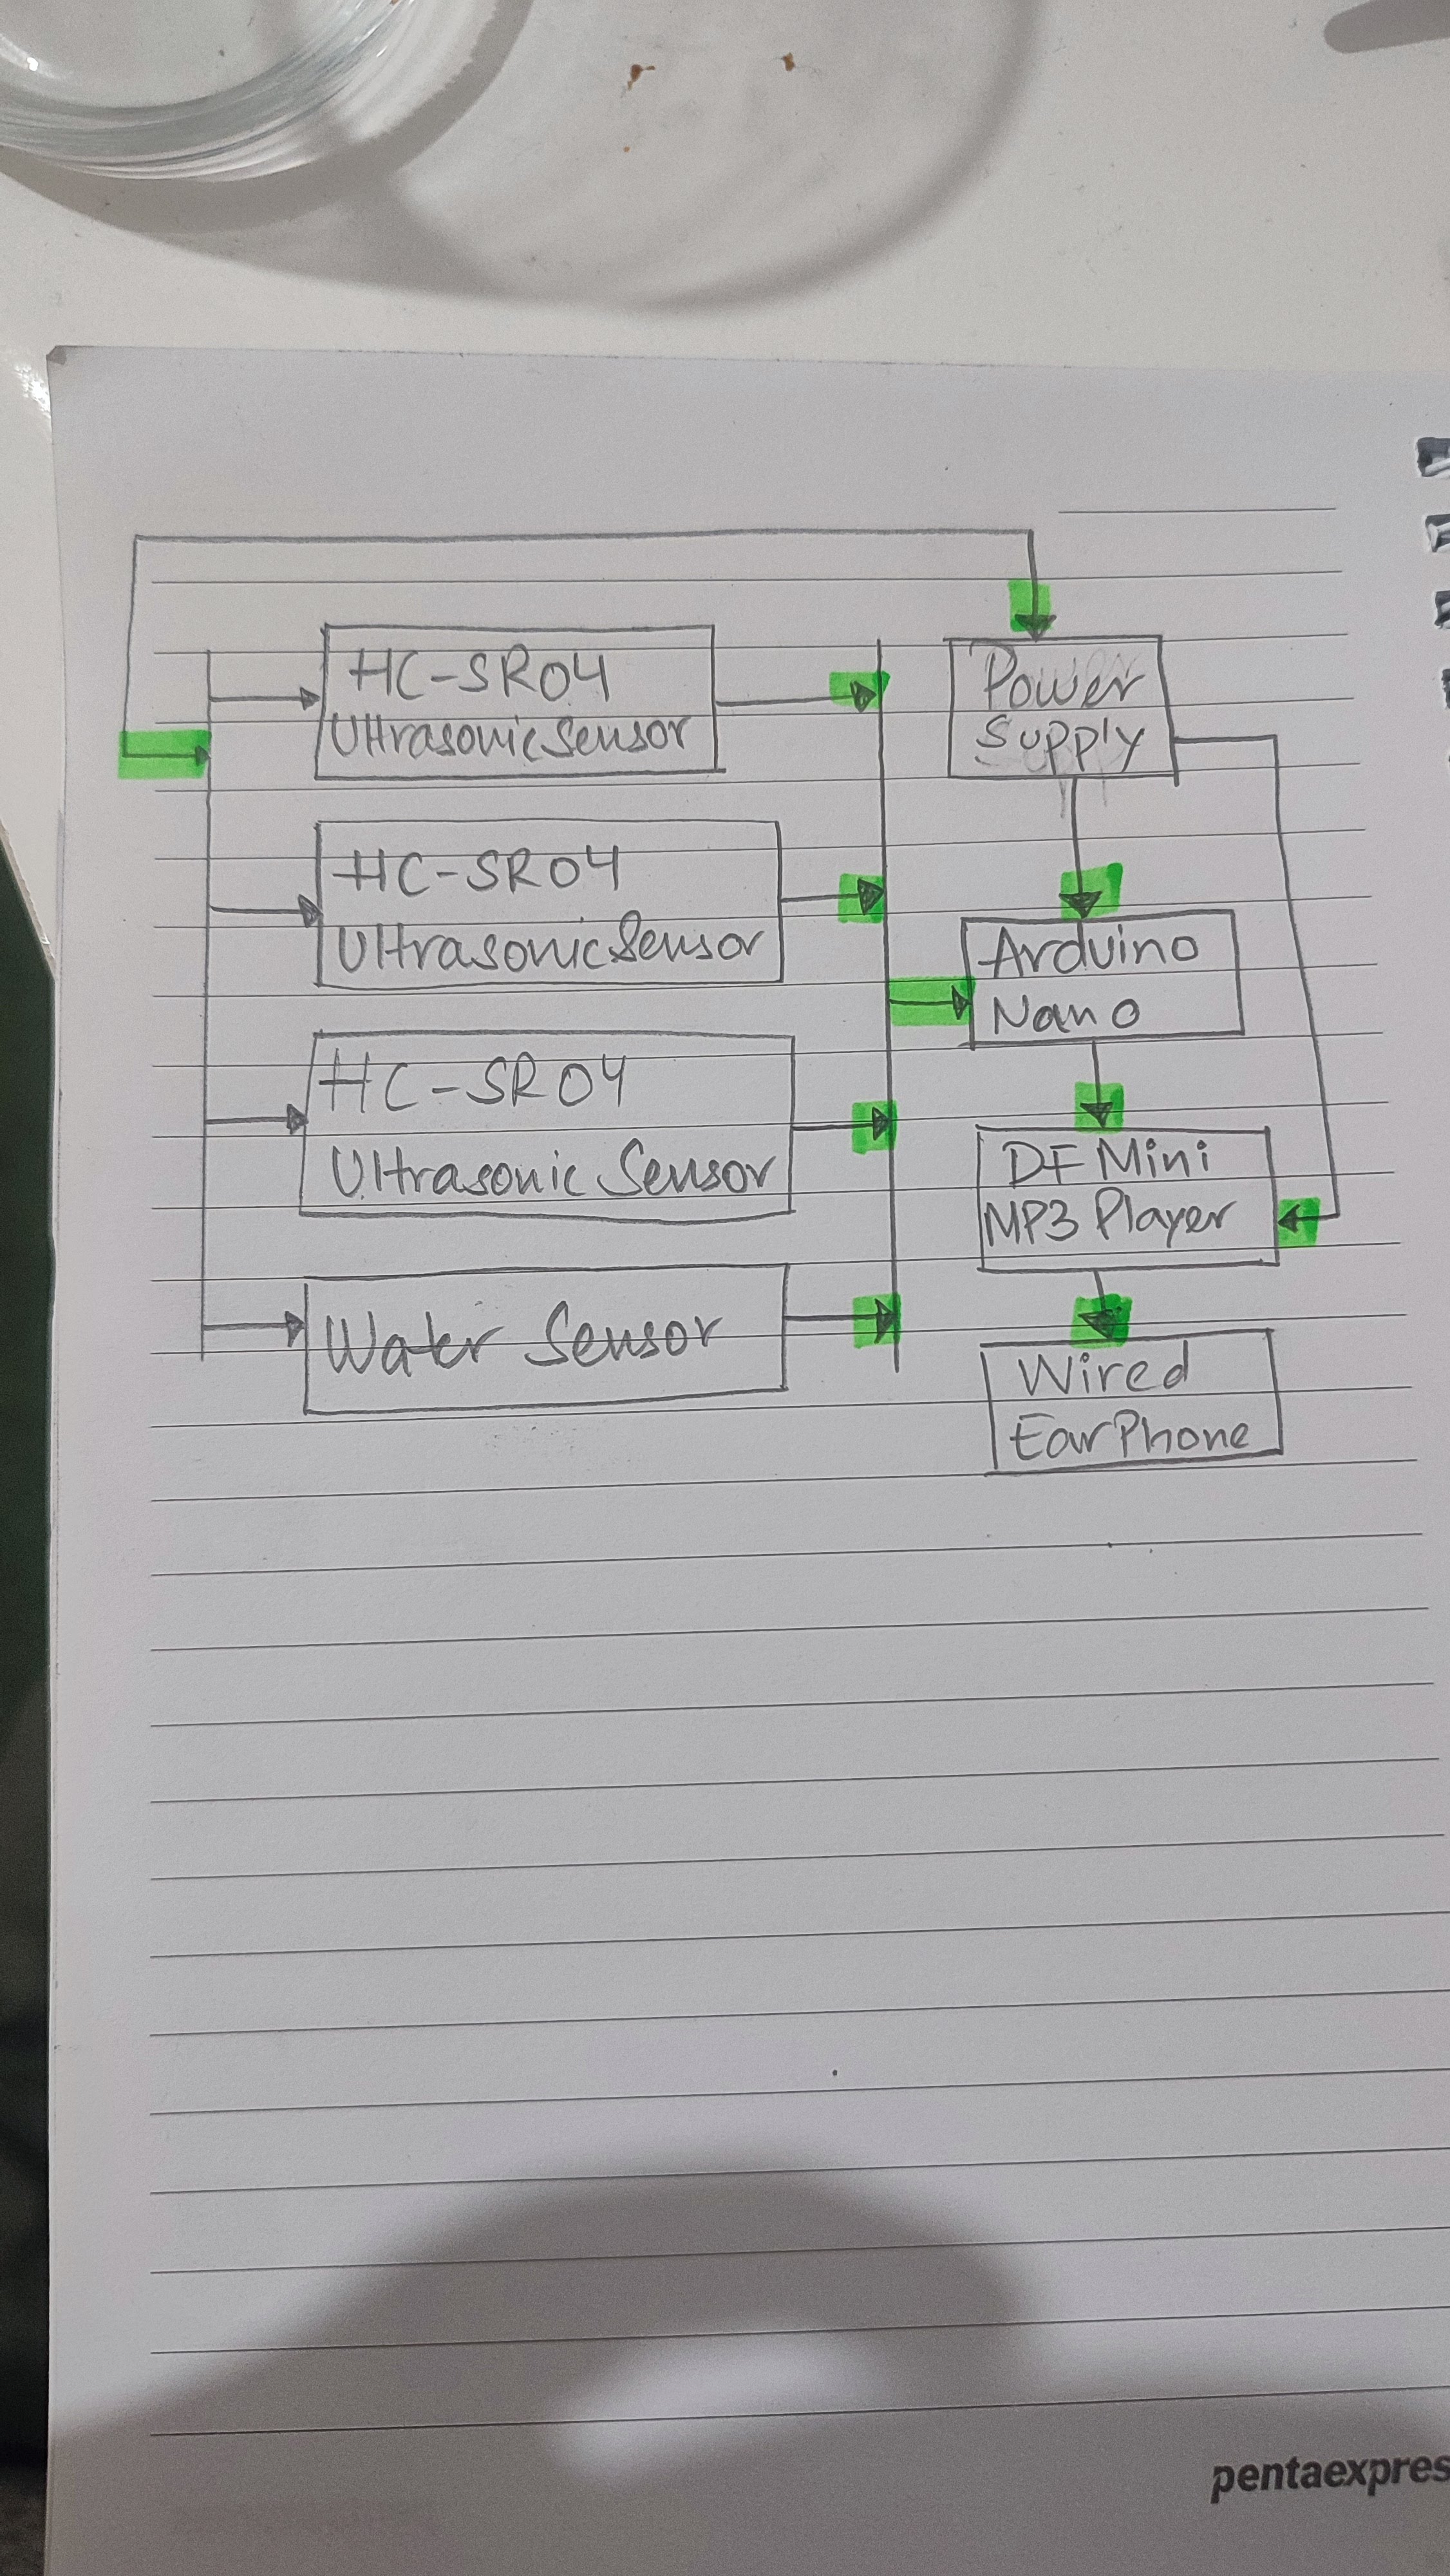 HC-SR04
Ultrasonic Sensor
HC-SR04
Ultrasonic Sensor
HC-SR04
Ultrasonic Sensor
Water Sensor
Power
Supply
Arduino
Nano
DF Mini
MP3 Player
Wired
EarPhone
pentaexpres